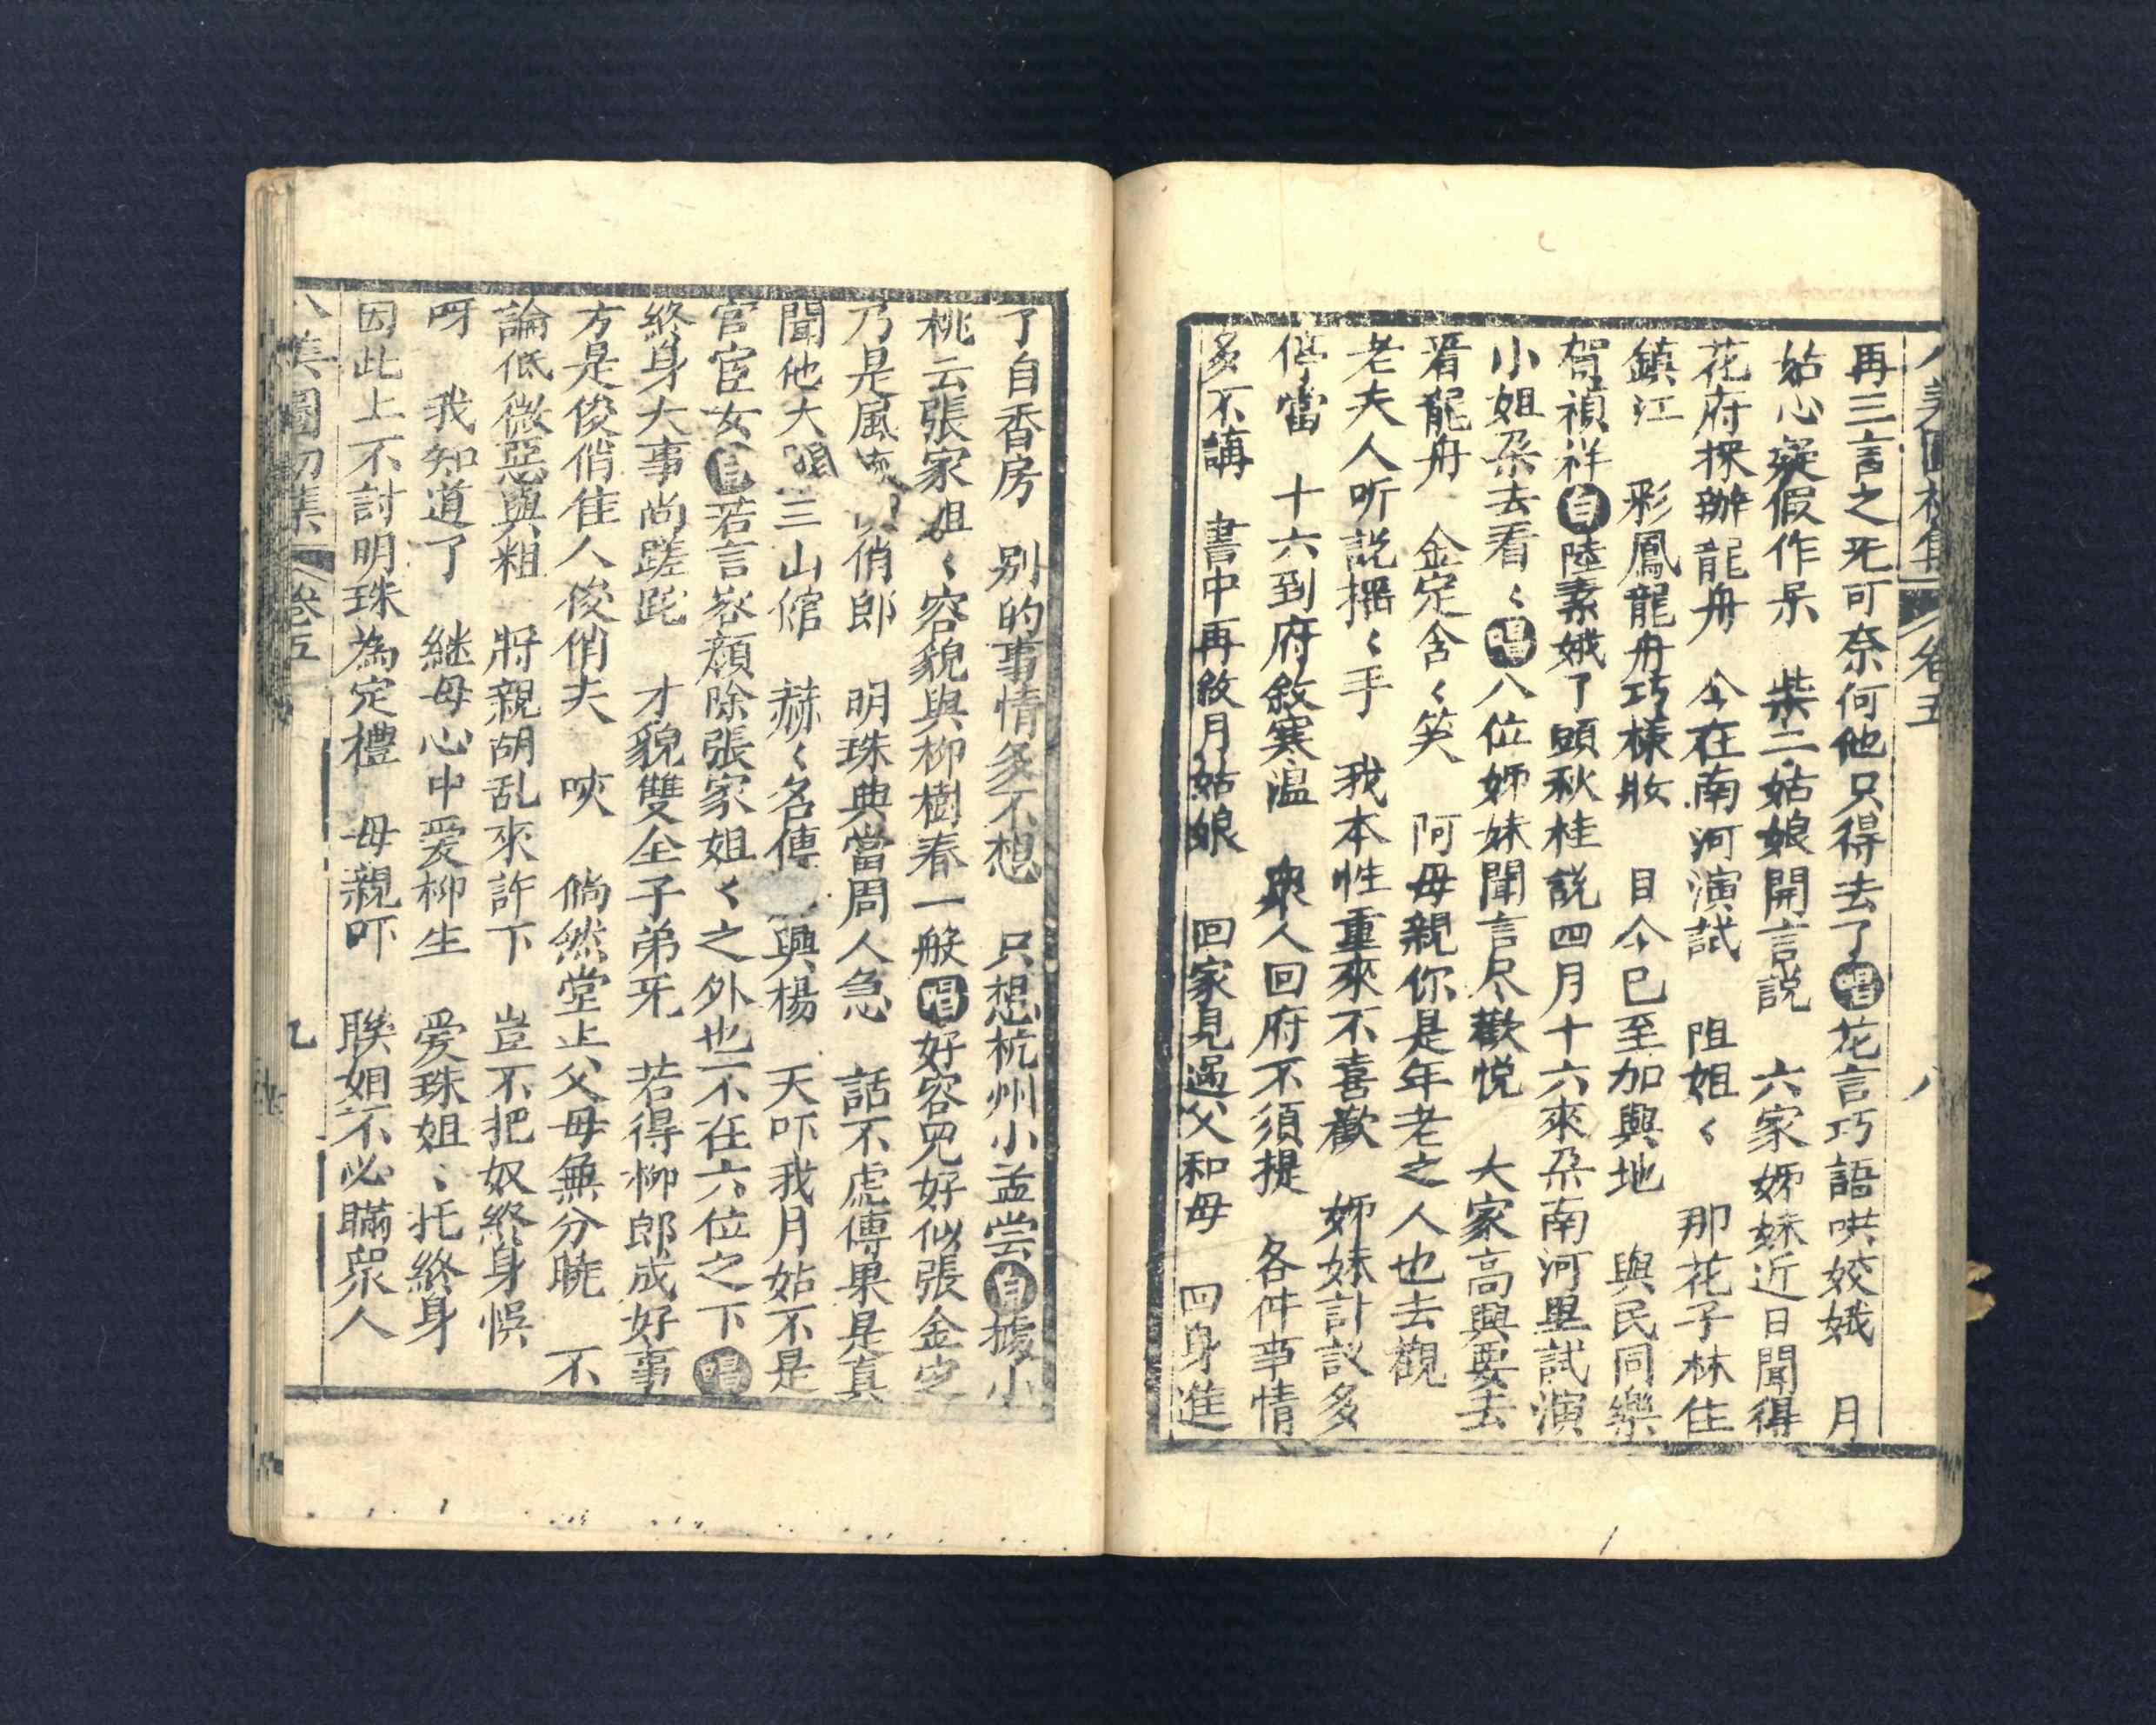 八美圖初集 卷五 八
再三言之死可奈何他只得去了唱花言巧語哄姣娥 月
姑心疑假作呆 柴二姑娘開言説 六家姊妹近日聞得
花府採辦龍舟 今在南河演試 阻姐〱 那花子林住
鎮江 彩鳳龍舟巧樣妝 目今已至加興地 與民同樂
賀禎祥白陸素娥了頭秋桂説四月十六來朶南河里試演
小姐朶去看〱唱八位姊妹聞言尽歡悦 大家高興要去
看龍舟 金定含〱笑 阿母親你是年老之人也去觀
老夫人听説摇〱手 我本性重來不喜歡 姊妹計議多
停當 十六到府敘寒温 衆人回府不須提 各件事情
多不講 書中再敘月姑娘 回家見過父和母 回身進
了自香房 别的事情多不想 只想杭州小孟尝白據小
桃云張家姐〱容貌與柳樹春一般唱好容皃好似張金定
乃是風 俏郎 明珠典當周人急 話不虚傳果是真
聞他大 三山馆 赫〱名傳 興楊 天吓我月姑不是
官宦女白若言容顔除張家姐〱之外也不在六位之下唱
終身大事尚蹉跎 才貌雙全子弟牙 若得柳郎成好事
方是俊俏佳人俊俏夫 唉 倘然堂上父母無分曉 不
論低微惡與粗 將親胡乱來許下 豈不把奴終身悞
呀 我知道了 继母心中爱柳生 爱珠姐〻托終身
因此上不討明珠為定禮 母親吓 聯姐不必瞞衆人
八美圖初集 卷五 九